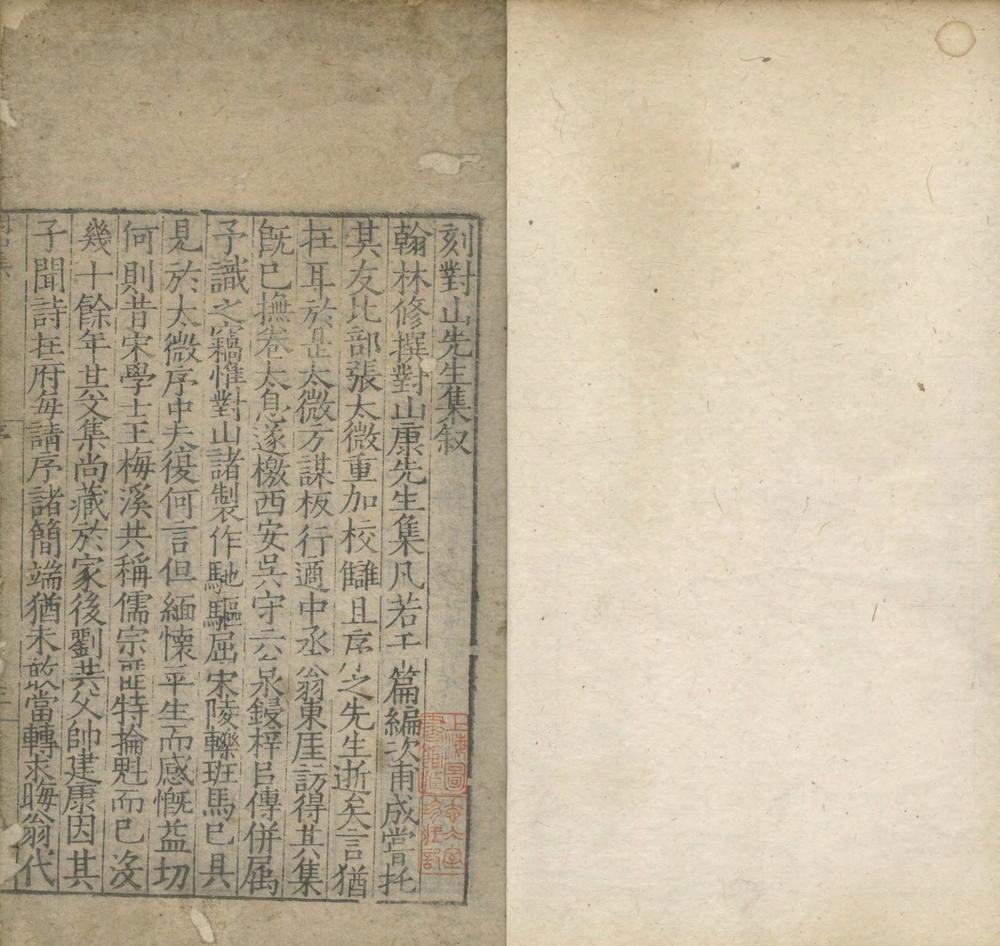 刻對山先生集叙
翰林修撰對山康先生集凡若干篇編次甫成嘗托
其友比部張太微重加校讎且序之先生逝矣言猶
在耳於是太微方謀板行適中丞翁東厓訪得其集
旣已撫卷太息遂檄西安吳守六泉鋟梓㠯傳併属
予識之竊惟對山諸製作馳驅屈宋陵轢班馬已具
見於太微序中夫復何言但緬懷平生而感慨益切
何則昔宋學士王梅溪共稱儒宗匪特掄魁而已沒
幾十餘年其文集尚藏於家後劉共父帥建康因其
子聞詩在府每請序諸簡端猶未敢當轉求晦翁代
序
上海圖書館